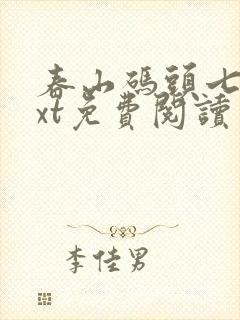 春山碼頭七
xt免費閱讀
李佳男